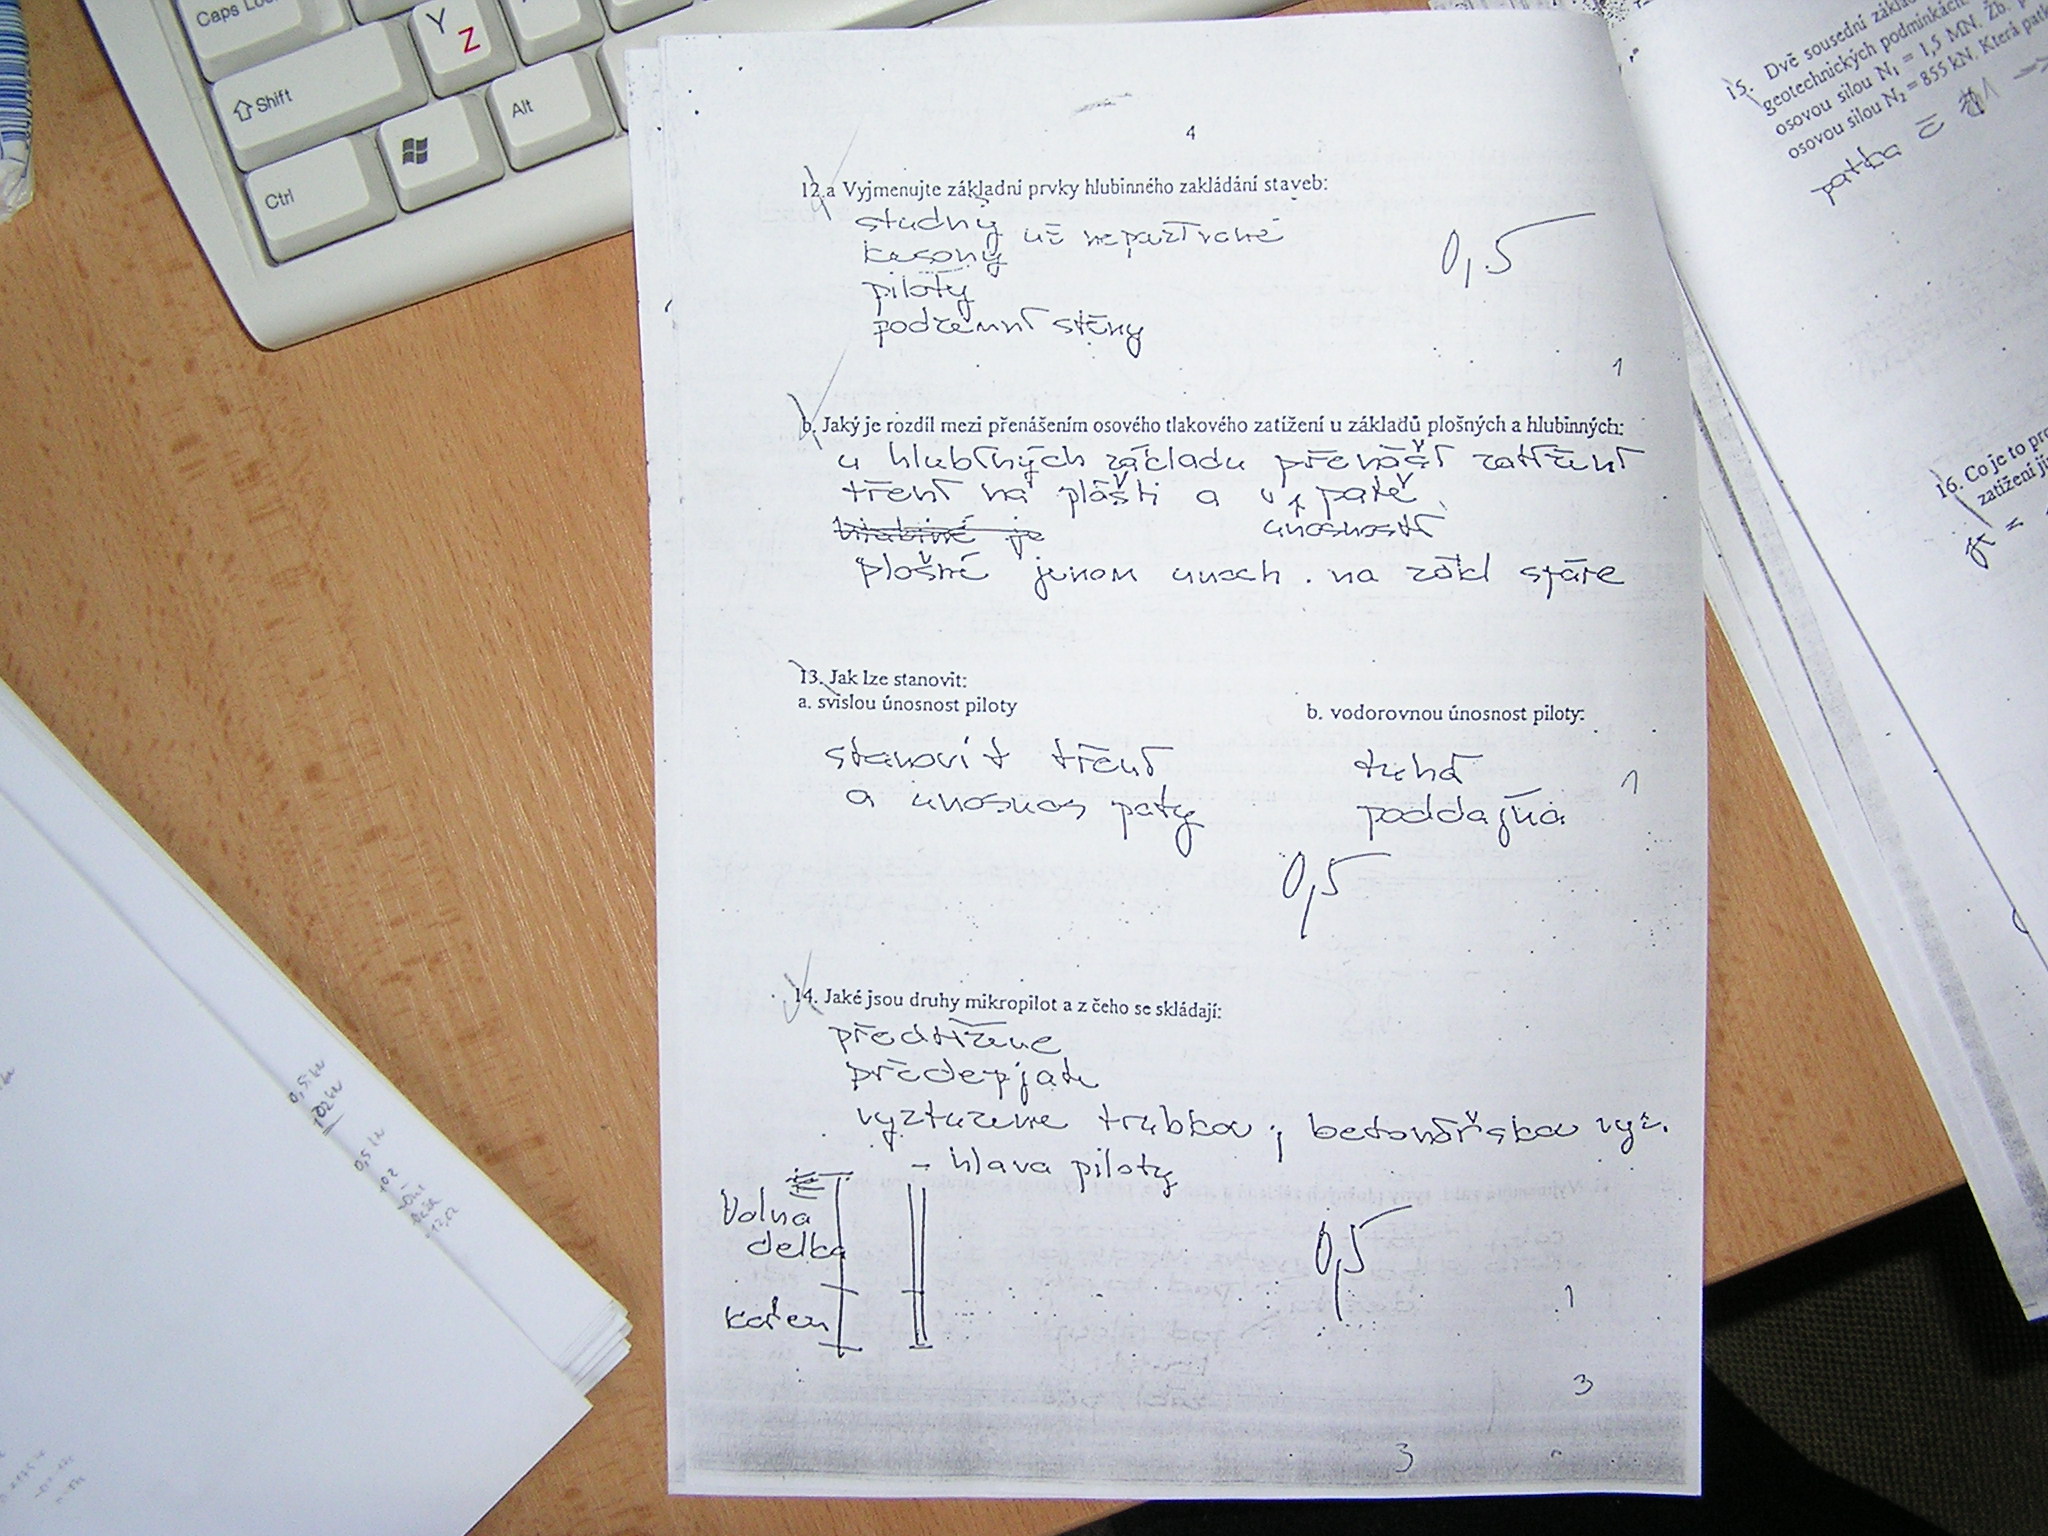 Caps Loc
Y
Z
Shift
Alt
Ctrl
4
12.a Vyjmenujte základní prvky hlubinného zakládání staveb:
studny
už
kesony
piloty
podzemní stěny
0,5
1
b. Jaký je rozdíl mezi přenášením osového tlakového zatížení u základů plošných a hlubinných:
u hlubiných základu přenáší zatížení
tření na plášti a v patě
únosností
plošné jenom na zákl spáře
13. Jak lze stanovit:
a. svislou únosnost piloty
b. vodorovnou únosnost piloty:
stanovit tření
a únosnos paty
tuhá
poddajná
1
0,5
14. Jaké jsou druhy mikropilot a z čeho se skládají:
předtížene
předepjate
vyztužene trubkou; betonářskou výz.
- hlava piloty
Volna
delka
kořen
0,5
1
3
3
15. Dvě sousední zákla
geotechnických podmínkách
osovou silou N₁ = 1,5 MN. Žb. p
osovou silou N₂ = 855 kN. Která patk
patka č
16. Co je to pro
zatížení ji